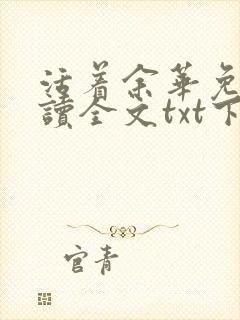 活着余華免
讀全文txt下
官青